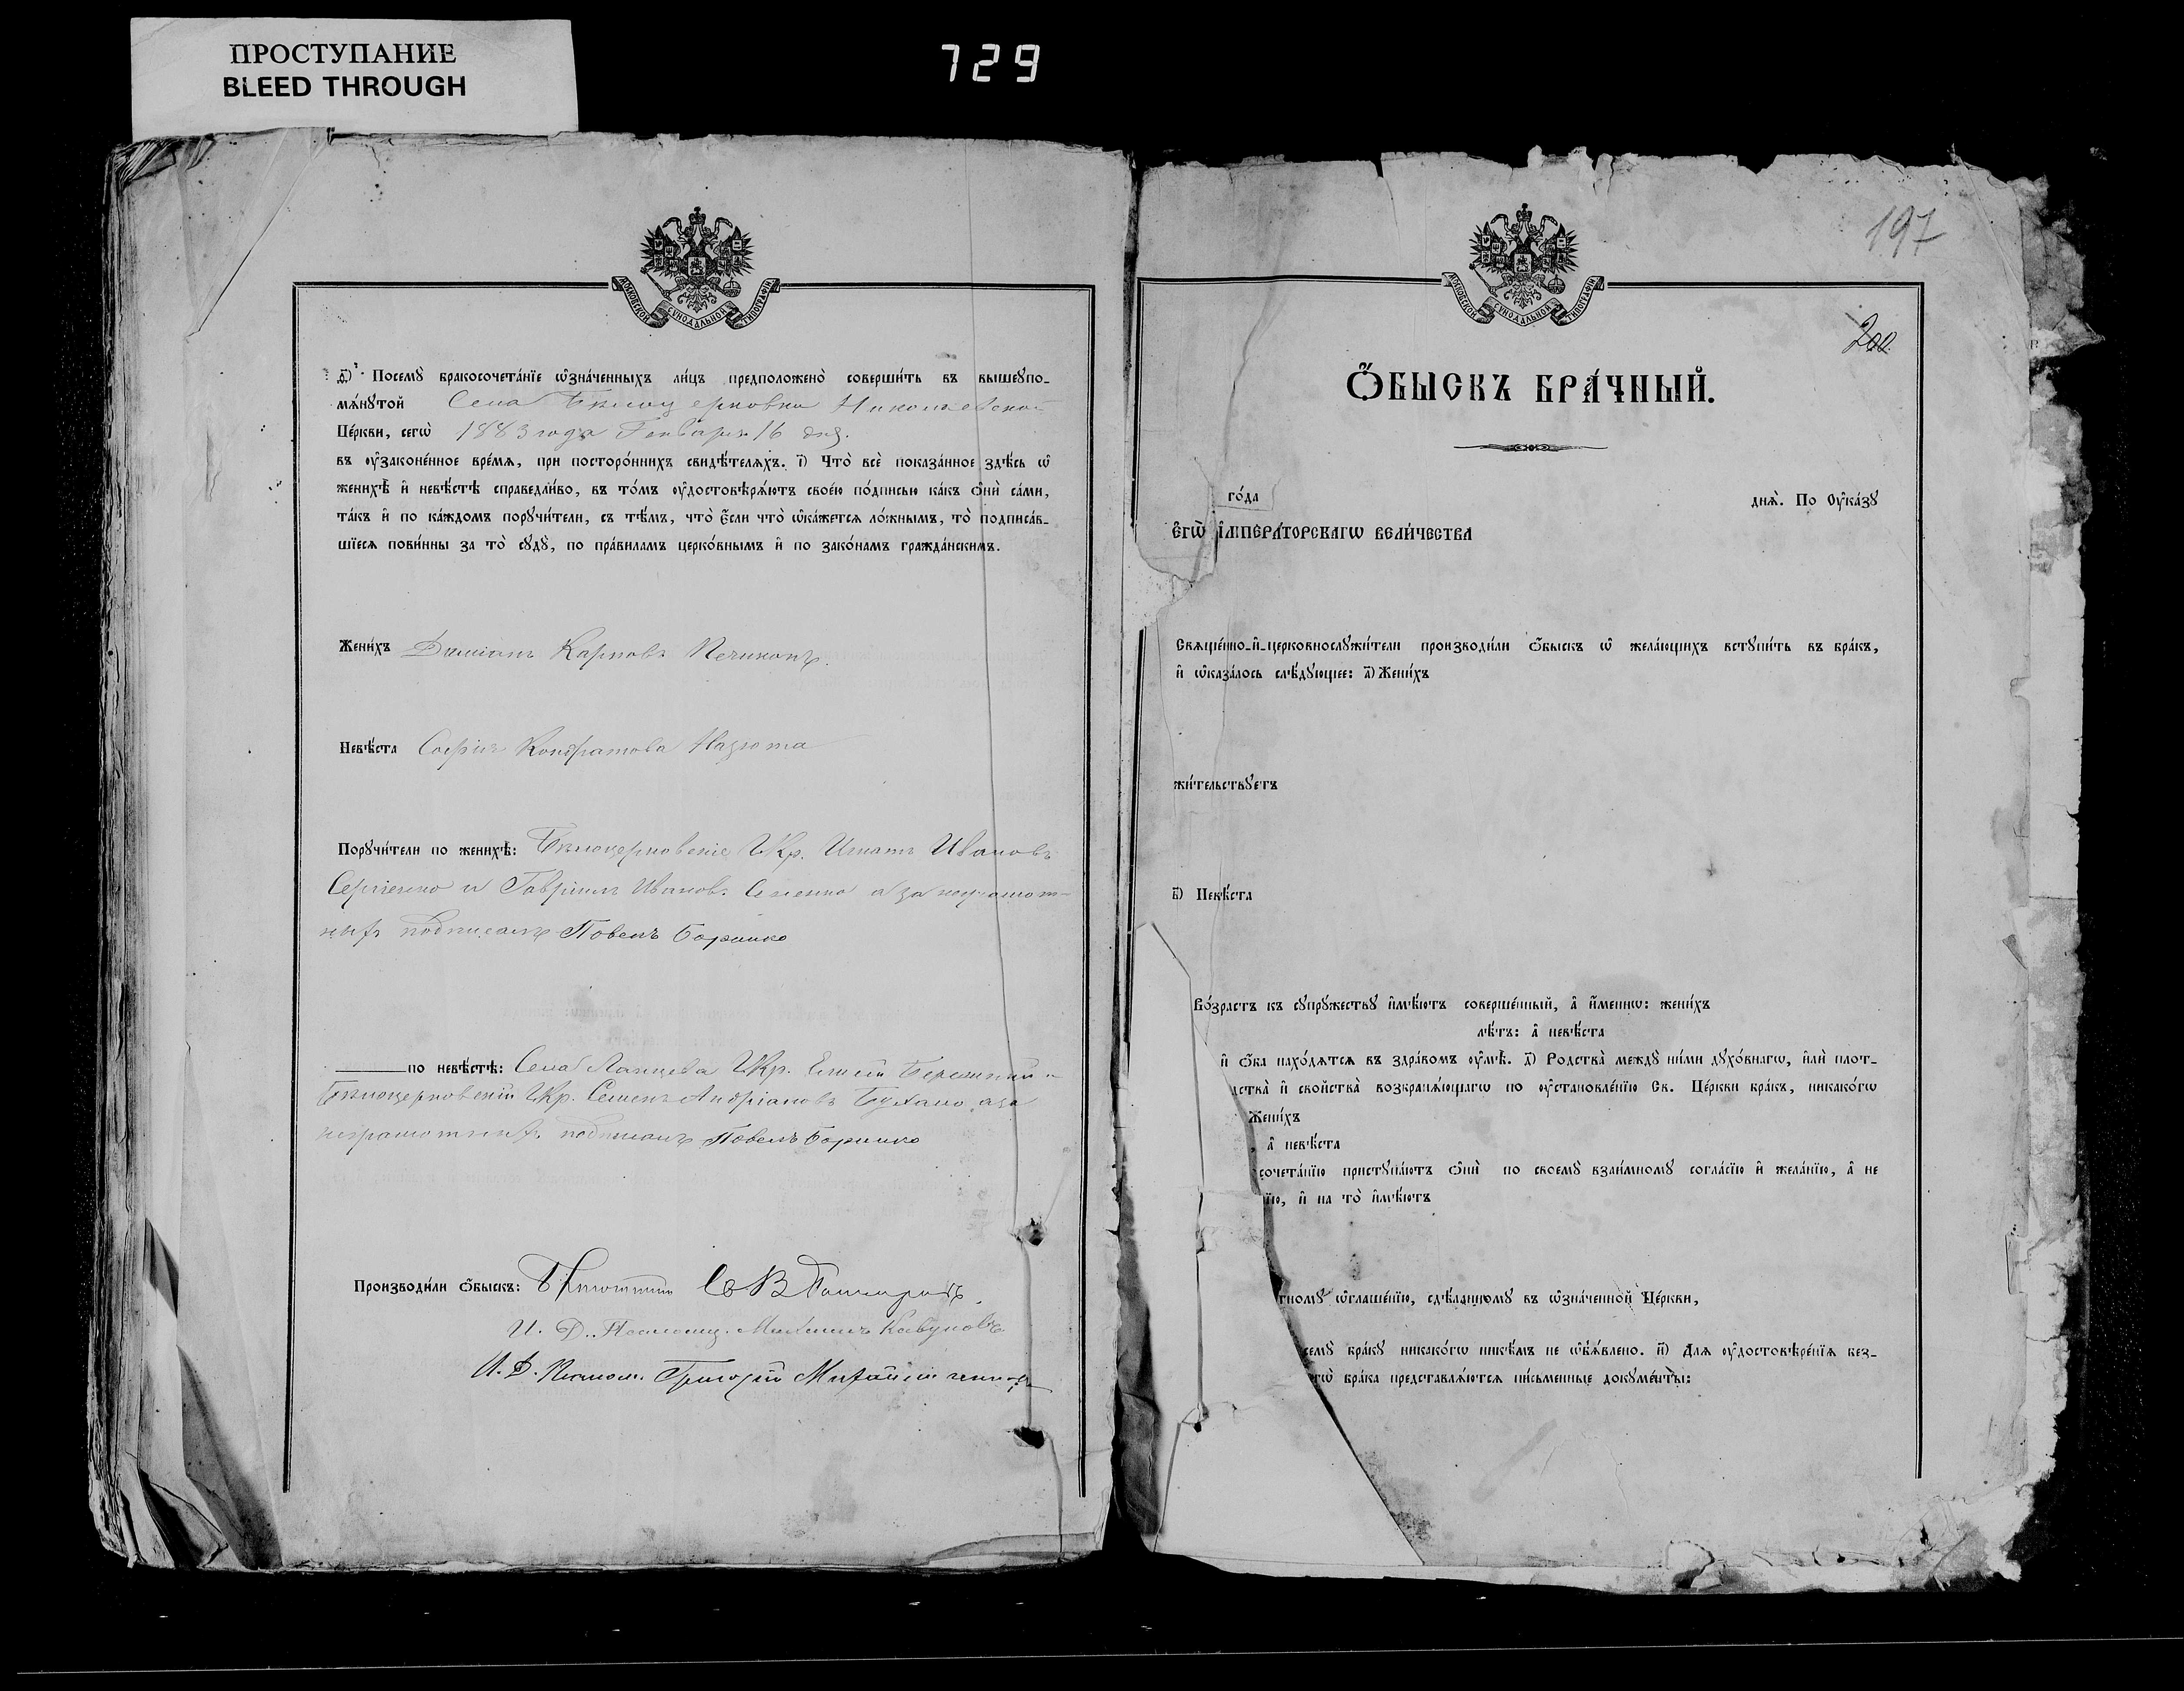 ПРОСТУПАНИЕ
BLEED THROUGH
729
МОСКОВСКОЙ СѴНОДАЛЬНОЙ ТИПОГРАФІИ
Посемꙋ̀ бракосочета́нїе ѡ҆зна́ченныхъ ли́цъ предположено̀ соверши́ть въ вышеꙋпо-
мѧ́нꙋтой Села Бѣлоцерковки Николаевской
Це́ркви, сегѡ̀ 1883 года Генваря 16 дня.
въ ᲂу҆законе́нное вре́мѧ, при посторо́ннихъ свидѣ́телѧхъ. і҃) Что̀ всѐ показа́нное здѣ́сь ѡ҆
женихѣ̀ и҆ невѣ́стѣ справедли́во, въ то́мъ ᲂу҆достовѣрѧ́ютъ свое́ю по́дписью ка́къ ѻ҆нѝ са́ми,
та́къ и҆ по ка́ждомъ порꙋчи́тели, съ тѣ́мъ, что̀ є҆́сли что̀ ѡ҆ка́жетсѧ ло́жнымъ, то̀ подписа́в-
шїесѧ пови́нны за то̀ сꙋдꙋ̀, по пра́виламъ церко́внымъ и҆ по зако́намъ гражда́нскимъ.
Жени́хъ Даміанъ Карповъ
Невѣ́ста Софія Кондратова Назюта
Порꙋчи́тели по женихѣ̀: Бѣлоцерковскіе Кр. Игнатъ Ивановъ
Сергіенко и Гавріилъ Иванов. а за неграмот-
ныхъ подписалъ Повелъ Боришко
по невѣ́стѣ: Села Кр.
Бѣлоцерковскій Кр. Семенъ Андріановъ а за
неграмотныхъ подписалъ Повелъ Боришко
Производи́ли ѻ҆́быскъ: С. В.
И. Д. Псаломщ. Михаилъ
И. Д. Псалом. Григорій
197
200
МОСКОВСКОЙ СѴНОДАЛЬНОЙ ТИПОГРАФІИ
Ѻ҆́БЫСКЪ БРА́ЧНЫЙ.
го́да днѧ̀. По Оу҆ка́зꙋ
Є҆ГѠ̀ І҆МПЕРА́ТОРСКАГѠ ВЕЛИ́ЧЕСТВА
Свѧще́нно-и҆-церковнослꙋжи́тели производи́ли ѻ҆́быскъ ѡ҆ жела́ющихъ встꙋпи́ть въ бра́къ,
и҆ ѡ҆каза́лось слѣ́дꙋющее: а҃) Жени́хъ
жи́тельствꙋетъ
в҃) Невѣ́ста
Во́зрастъ къ сꙋпрꙋ́жествꙋ и҆мѣ́ютъ соверше́нный, а҆ и҆́меннѡ: жени́хъ
лѣ́тъ: а҆ невѣ́ста
и҆ ѻ҆́ба нахо́дѧтсѧ въ здра́вомъ ᲂу҆мѣ̀. д҃) Родства̀ междꙋ̀ ни́ми дꙋхо́внагѡ, и҆лѝ плот-
дства̀ и҆ свойства̀ возбранѧ́ющагѡ по ᲂу҆становле́нїю Св. Це́ркви бра́къ, никако́гѡ
Жени́хъ
, а҆ невѣ́ста
сочета́нїю пристꙋпа́ютъ ѻ҆нѝ по своемꙋ̀ взаи́мномꙋ согла́сїю и҆ жела́нїю, а҆ не
їю, и҆ на то̀ и҆мѣ́ютъ
тномꙋ ѡ҆глаше́нїю, сдѣ́ланномꙋ въ ѡ҆зна́ченной Це́ркви,
семꙋ̀ бра́кꙋ никако́гѡ никѣ́мъ не ѡ҆б̾ѧ́влено. и҃) Длѧ ᲂу҆достовѣре́нїѧ без-
гѡ̀ бра́ка представлѧ́ютсѧ пи́сьменные докꙋме́нты: